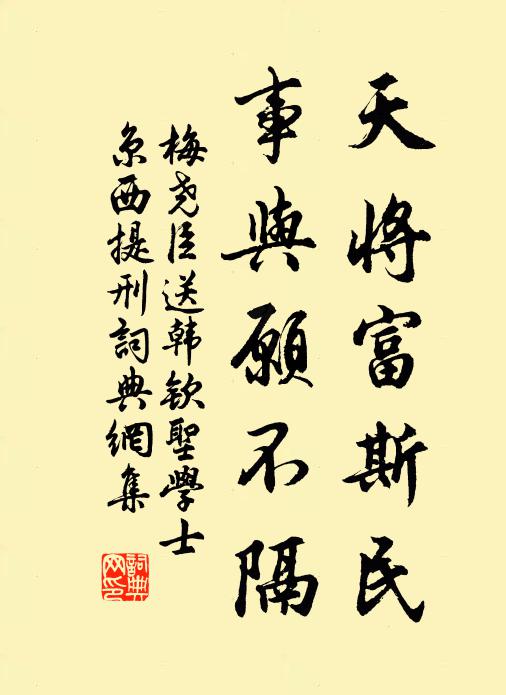 天將富斯民
事與願不隔
梅尧臣送韩欽聖學士
京西提刑詞典網集
詞典
网印